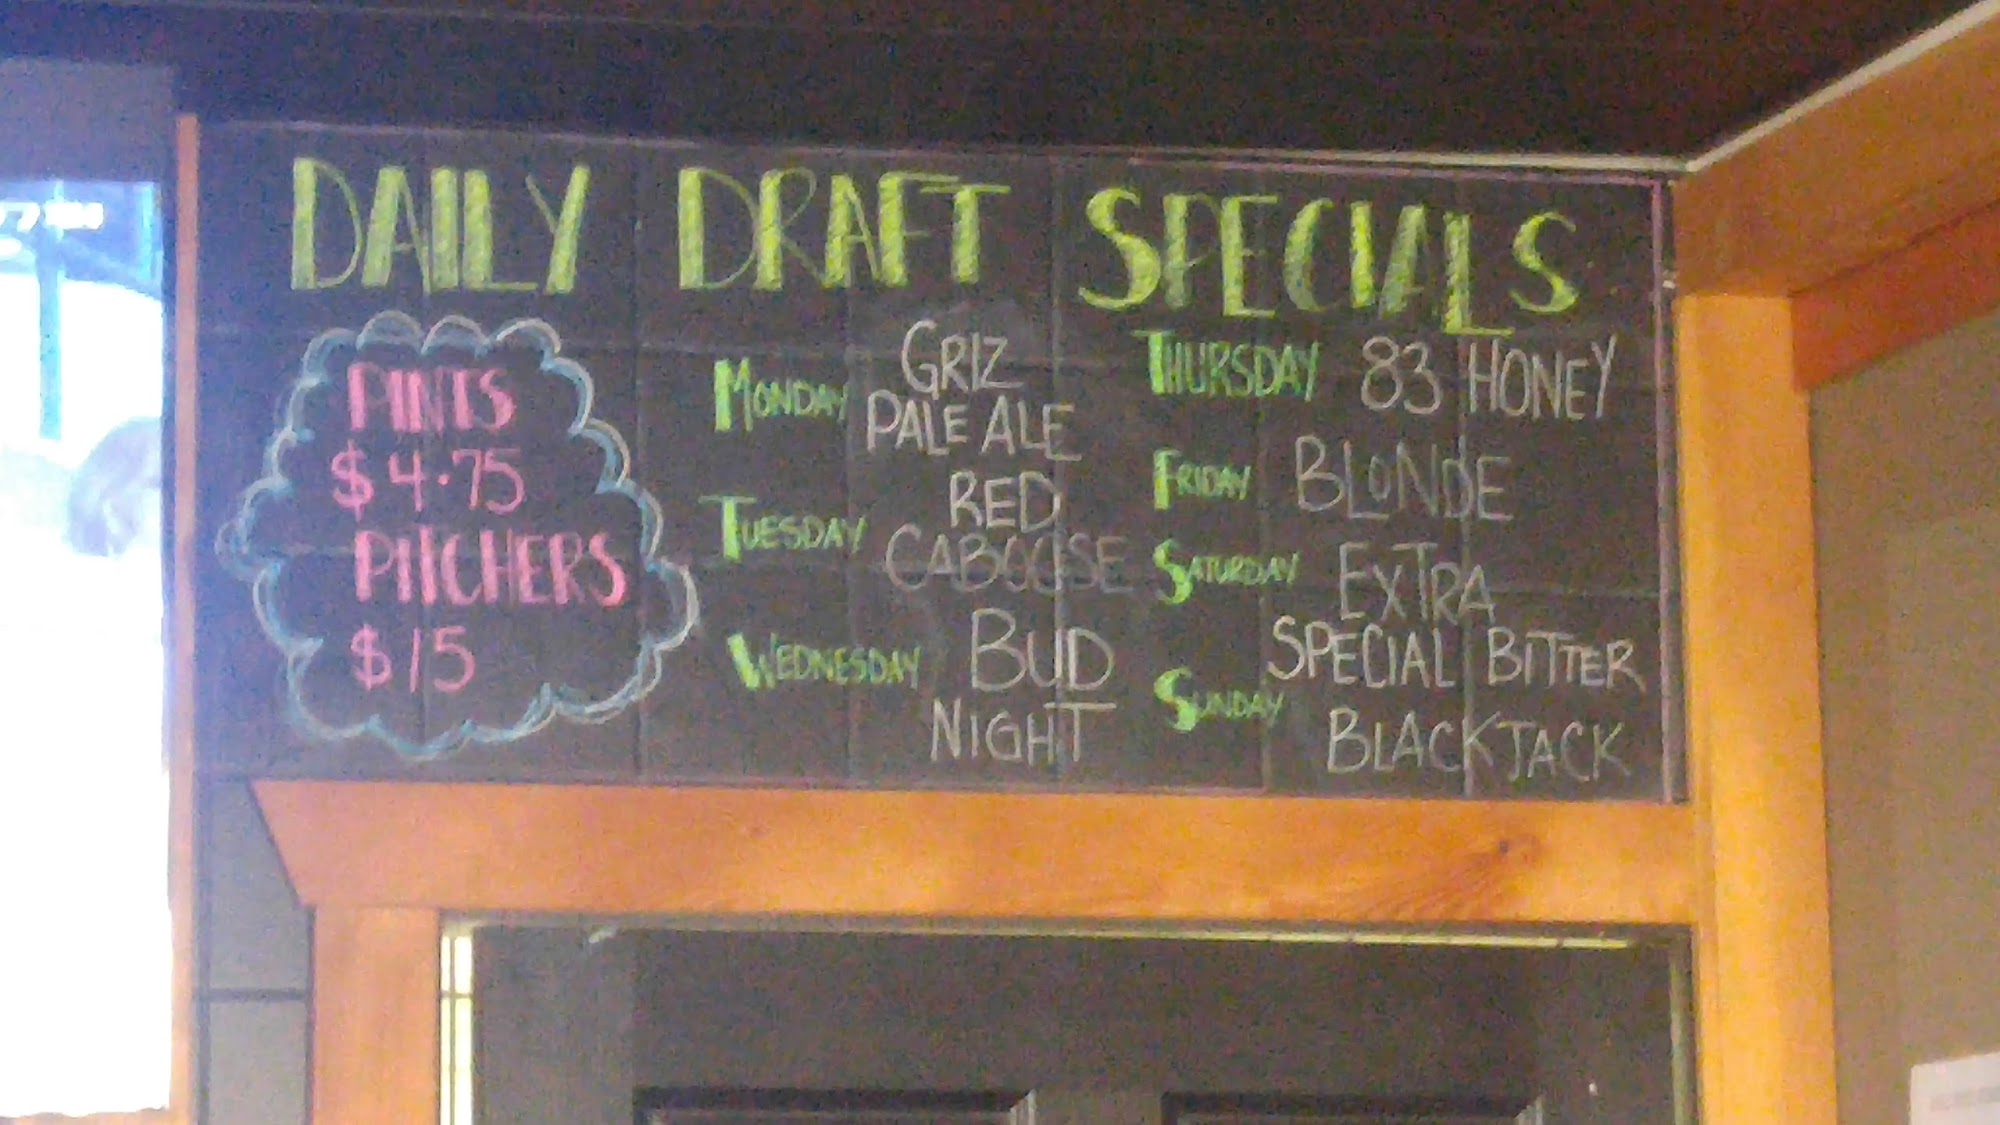 DAILY DRAFT SPECIALS
PINTS
$4.75
PITCHERS
$15
MONDAY GRIZ
PALE ALE
TUESDAY RED
CABOOSE
WEDNESDAY BUD
NIGHT
THURSDAY 83 HONEY
FRIDAY BLONDE
SATURDAY EXTRA
SPECIAL BITTER
SUNDAY BLACKJACK